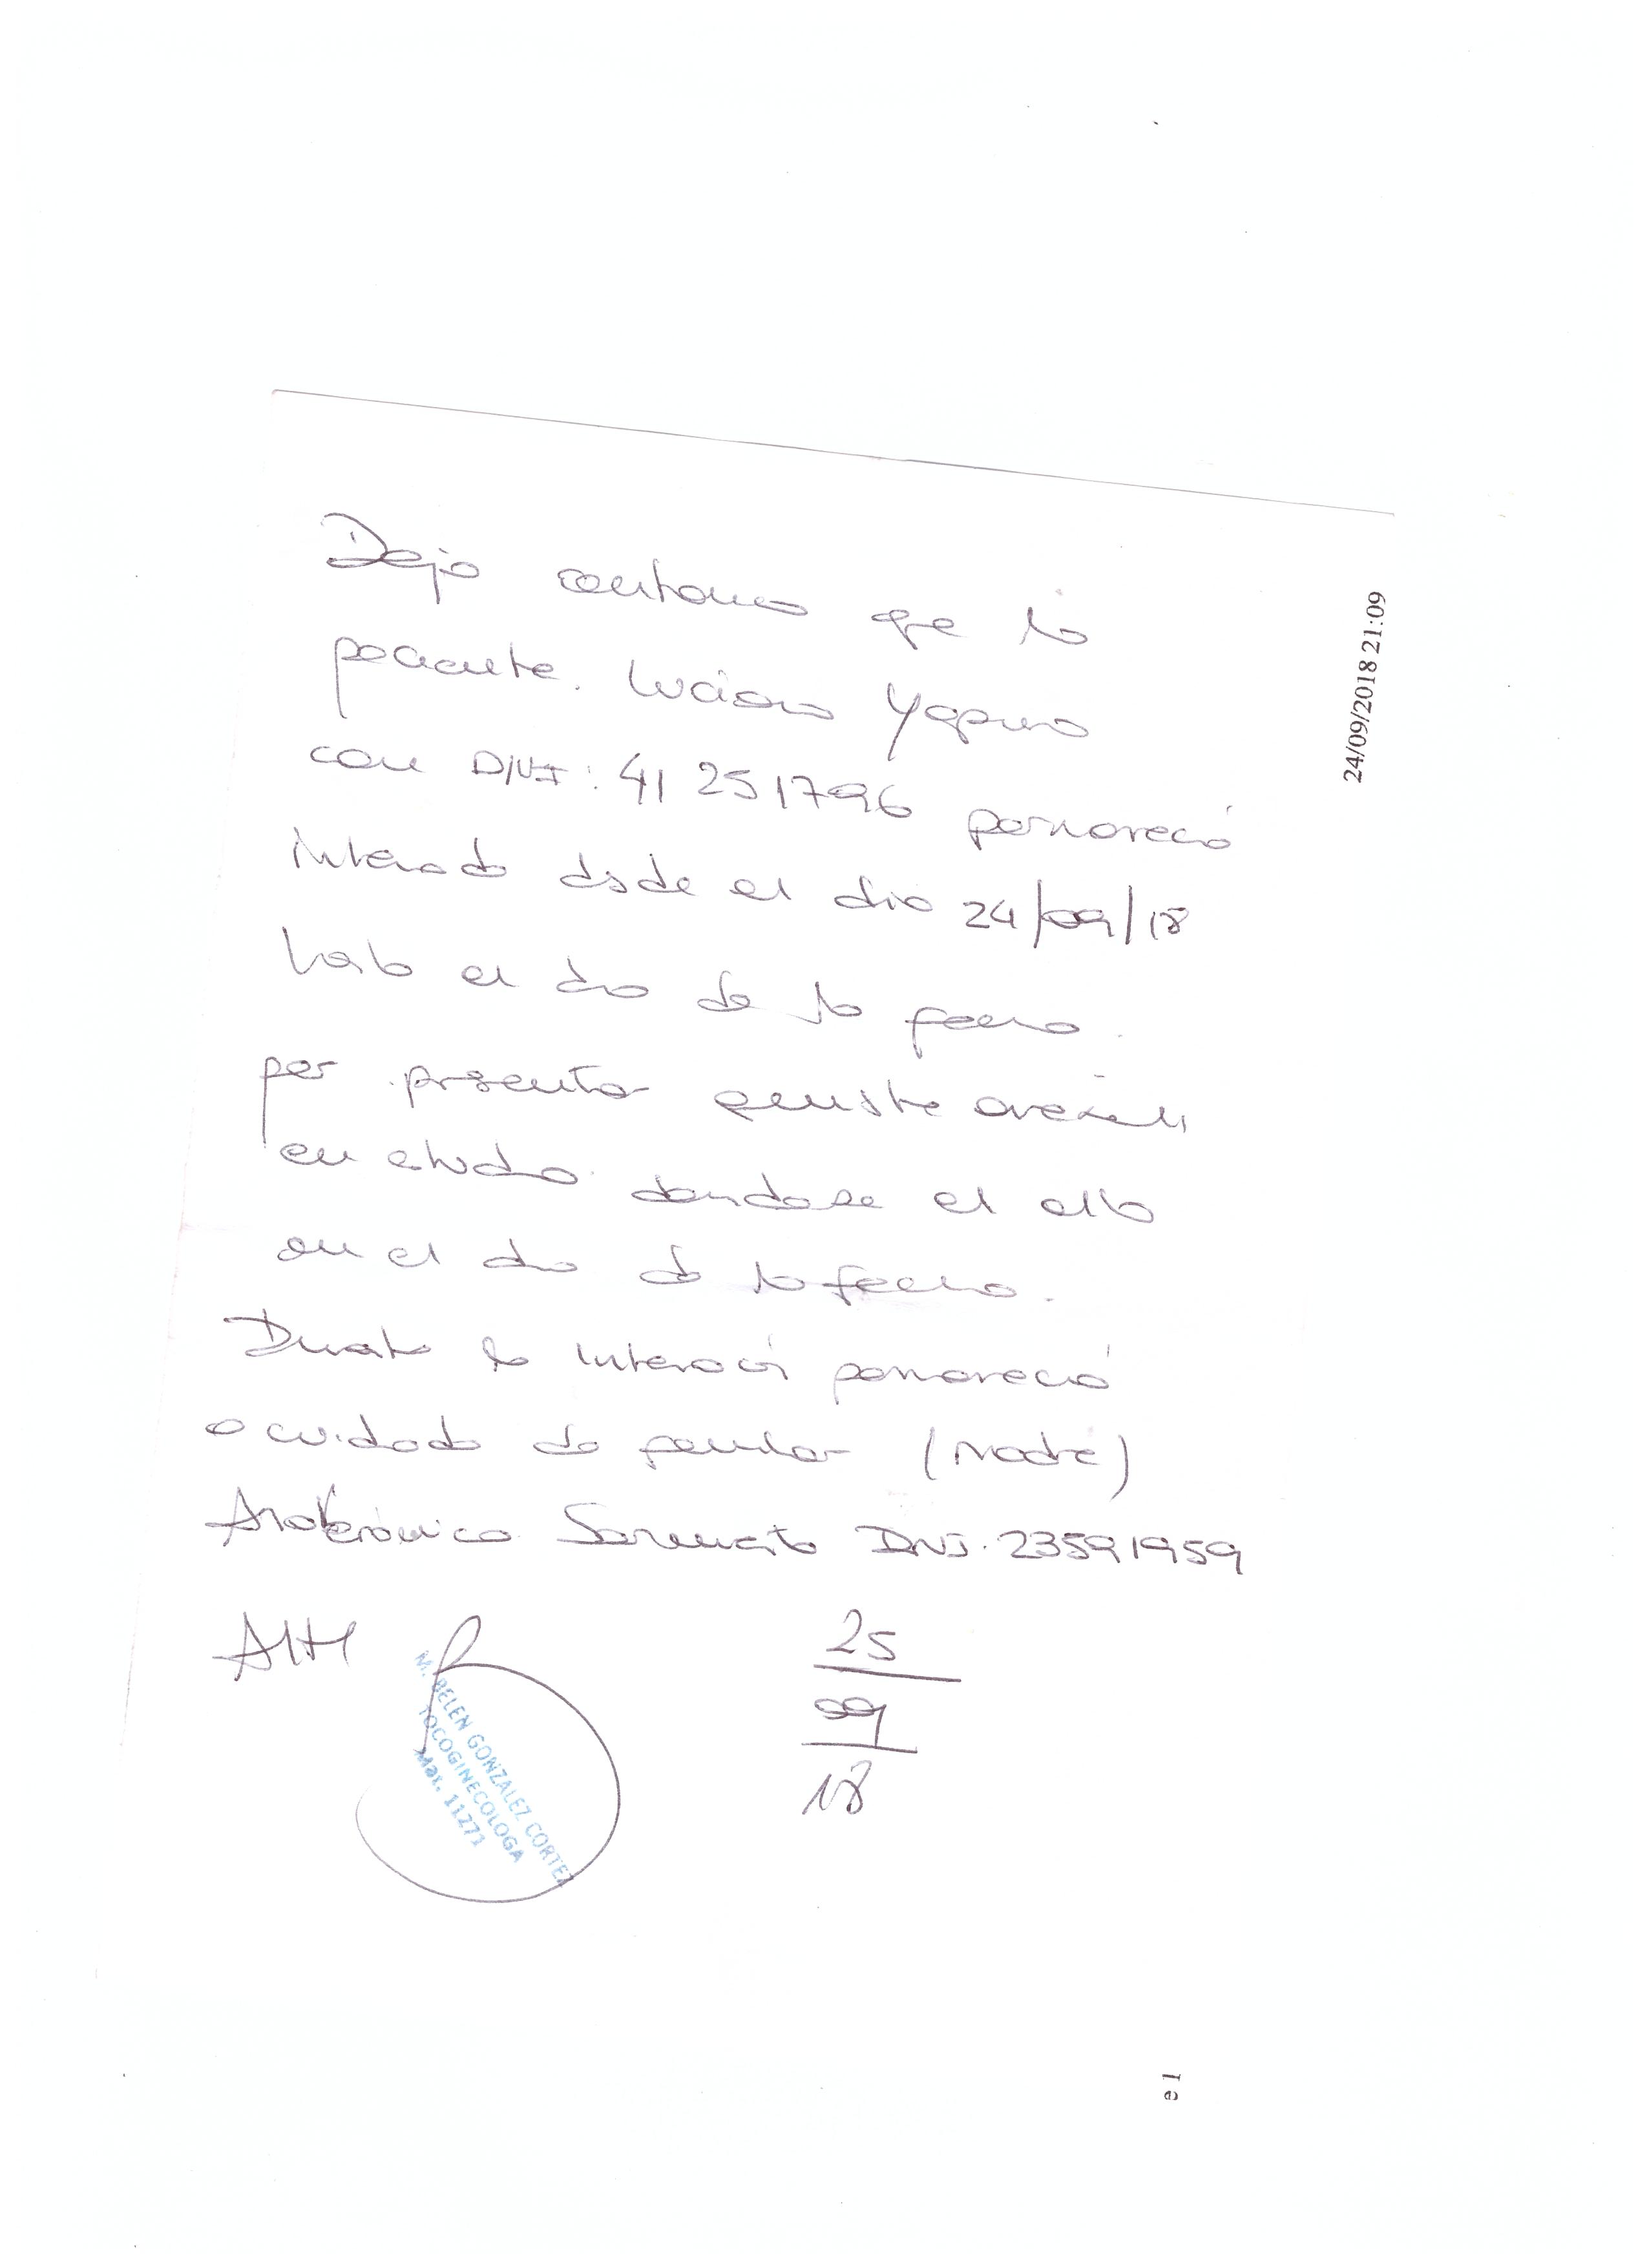 Dejo constancia que la
paciente. Luciana Yapura
con DNI: 41 251796 permaneció
internada desde el día 24/09/18
hasta el día de la fecha.
por presentar quiste
en estudio dandose el alta
en el día de la fecha.
Durante la internación permaneció
a cuidado de familiar (Madre)
Ana Verónica Sarmiento DNI. 23591959
25
09
18
M. BELEN GONZALEZ CORTEZ
TOCOGINECOLOGA
Mat. 11271
24/09/2018 21:09
e 1